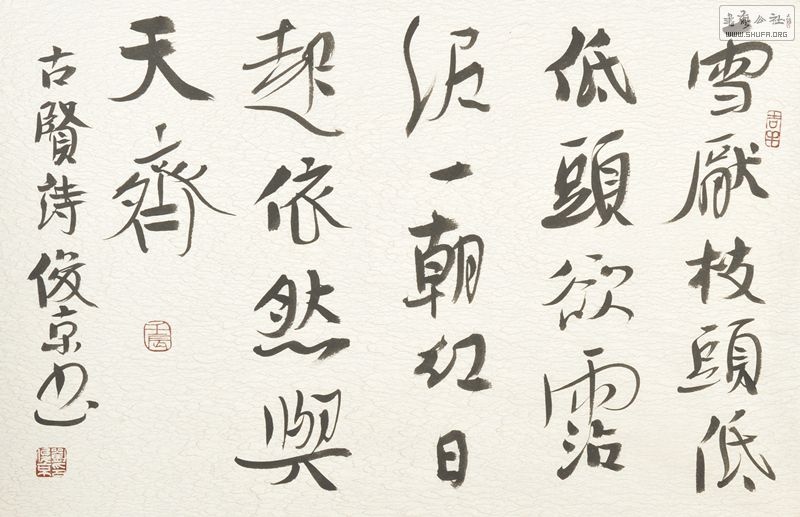 雪厭枝頭低
低頭欲霑
泥一朝紅日
起依然與
天齊
古賢詩俊京书
WWW.SHUFA.ORG